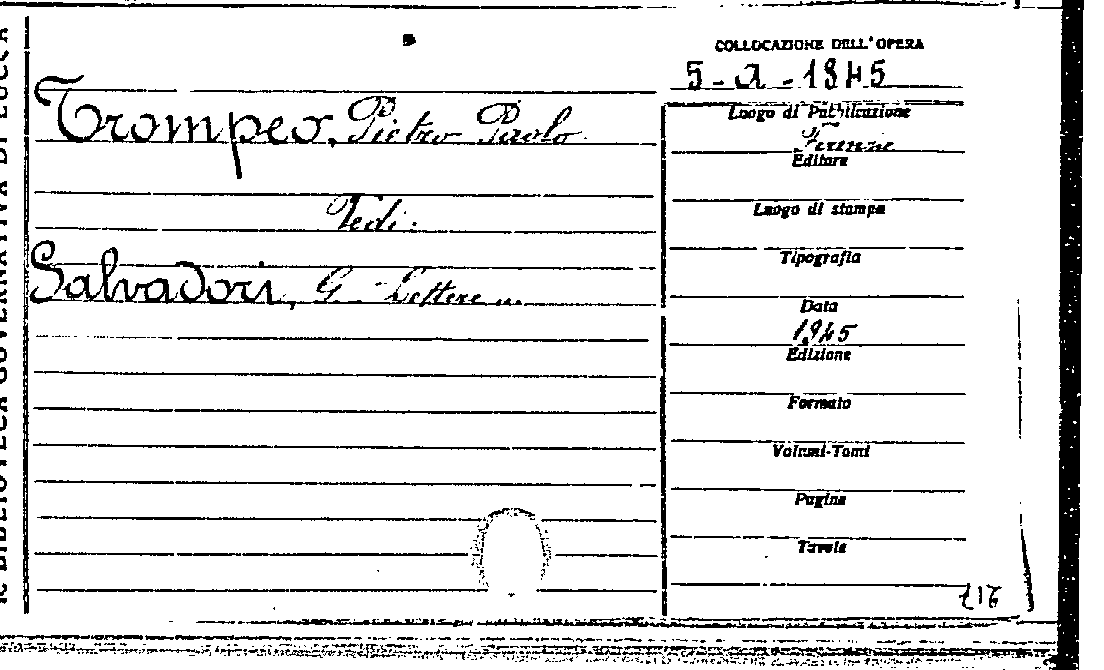 BIBLIOTECA GOVERNATIVA DI LUCCA
COLLOCAZIONE DELL'OPERA
5-a-1845
Trompeo, Pietro Paolo
Vedi:
Salvadori, G. Lettere ...
Luogo di Pubblicazione
Firenze
Editore
Luogo di stampa
Tipografia
Data
1945
Edizione
Formato
Volumi-Tomi
Pagine
Tavole